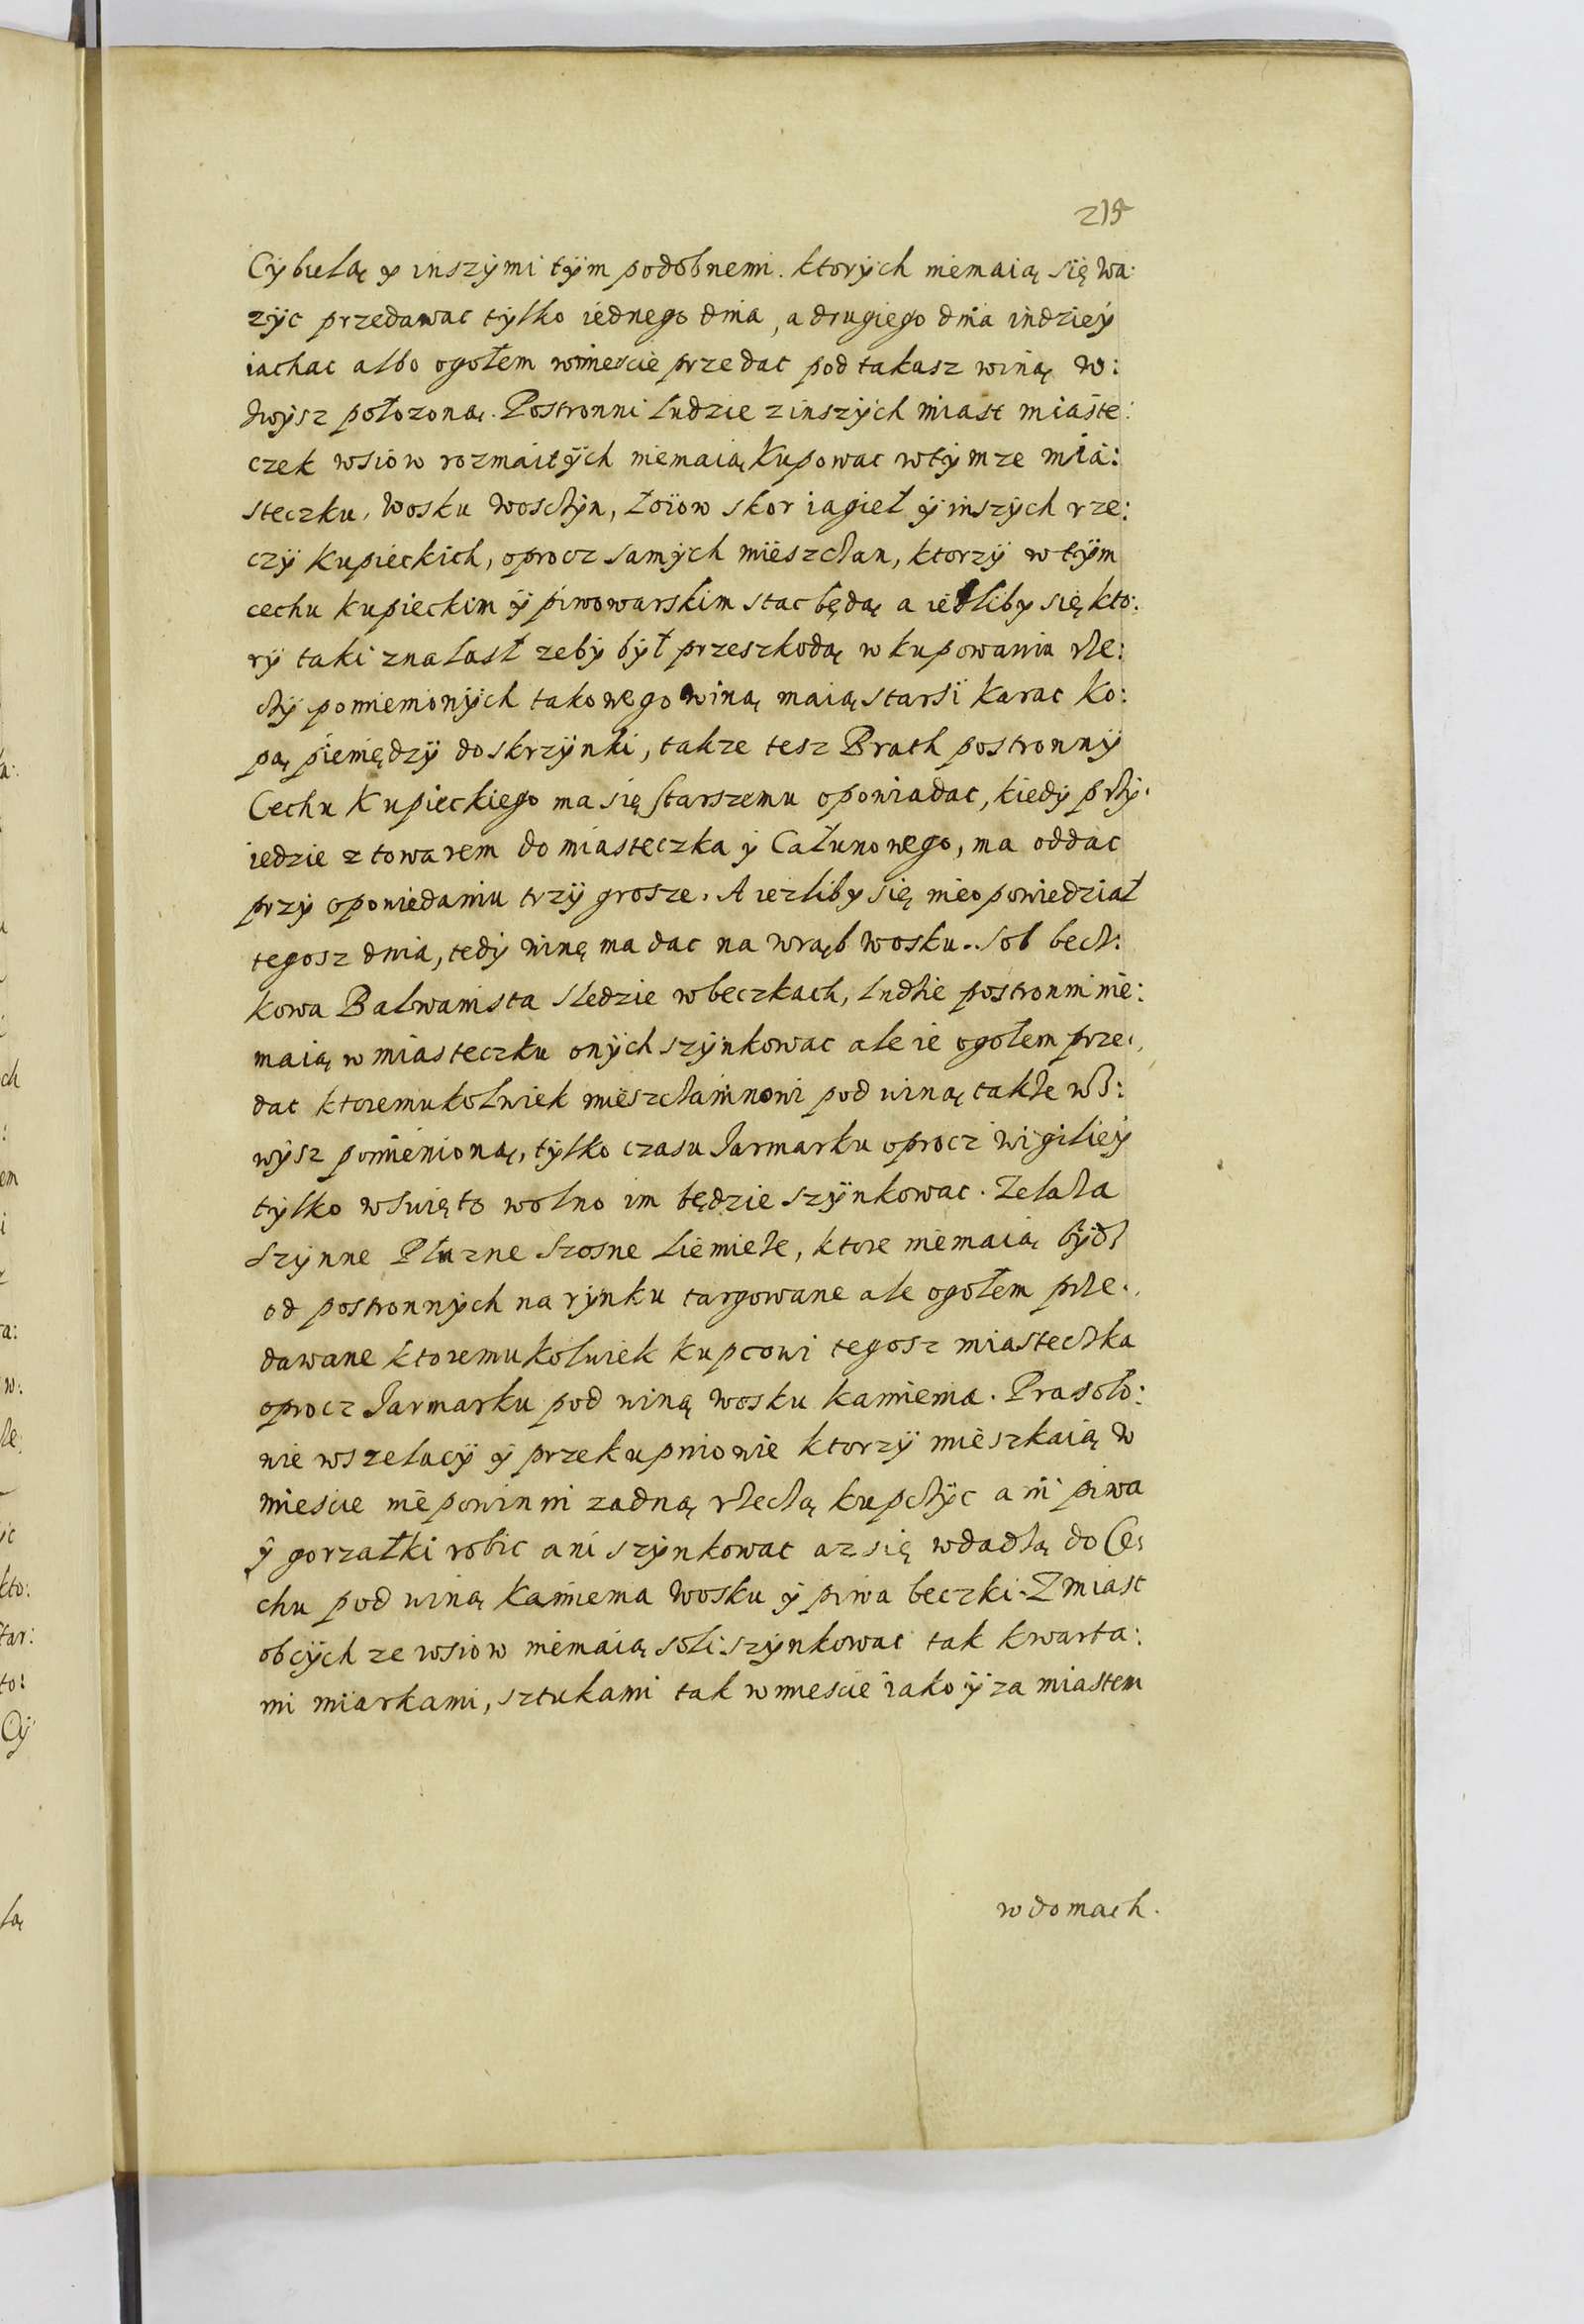 215
Cybulą y inszymi tym podobnemi. ktorych niemaią się wa:
zyc przedawac tylko iednego dnia, a drugiego dnia indziey
iachac albo ogołem wmiescie przedac pod takasz winą w:
dwysz połozoną. Postronni ludzie z inszych miast miaste:
czek wsiow rozmaitych niemaią kupowac wtymze mia:
steczku, Wosku Woschyn, Łoiow skor iagieł y inszych rze:
czy kupieckich, oprocz samych mieszchan, ktorzy w tym
cechu kupieckim y piwowarskim stac będą a iesliby się kto:
ry taki znalast zeby był przeszkodą w kupowaniu rze:
czy pomienionych takowego winą maią starsi karac ko:
pą pieniędzy do skrzynki, takze tesz Brath postronny
Cechu Kupieckiego ma się starszemu opowiadac, kiedy przy:
iedzie z towarem do miasteczka y Całunowego, ma oddac
przy opowiedaniu trzy grosze. A iezliby się nieopowiedział
tegosz dnia, tedy winę ma dac na wrąb wosku. Sol becz:
kowa Balwanista sledzie wbeczkach, ludzie postronni nie:
maią w miasteczku onych szynkowac ale ie ogołem prze:
dac ktoremukolwiek mieszchaninowi pod winą takze wz:
wysz pomienioną, tylko czasu Jarmarku oprocz wigiliey
tylko wswięto wolno im będzie szynkowac. Zelaza
szynne Płuzne Szosne Liemieze, ktore niemaią bydz
od postronnych na rynku targowane ale ogołem prze:
dawane ktoremukolwiek kupcowi tegosz miasteczka
oprocz Jarmarku pod winą wosku kamienia. Prasoło:
wie wszelacy y przekupniowie ktorzy mieszkaią w
miescie nie powinni zadną rzeczą kupczyc ani piwa
y gorzałki robic ani szynkowac az się wdadzą do Ce:
chu pod winą kamienia Wosku y piwa beczki. Z miast
obcych ze wsiow niemaią soli szynkowac tak kwarta:
mi miarkami, sztukami tak wmiescie iako y za miastem
wdomach.